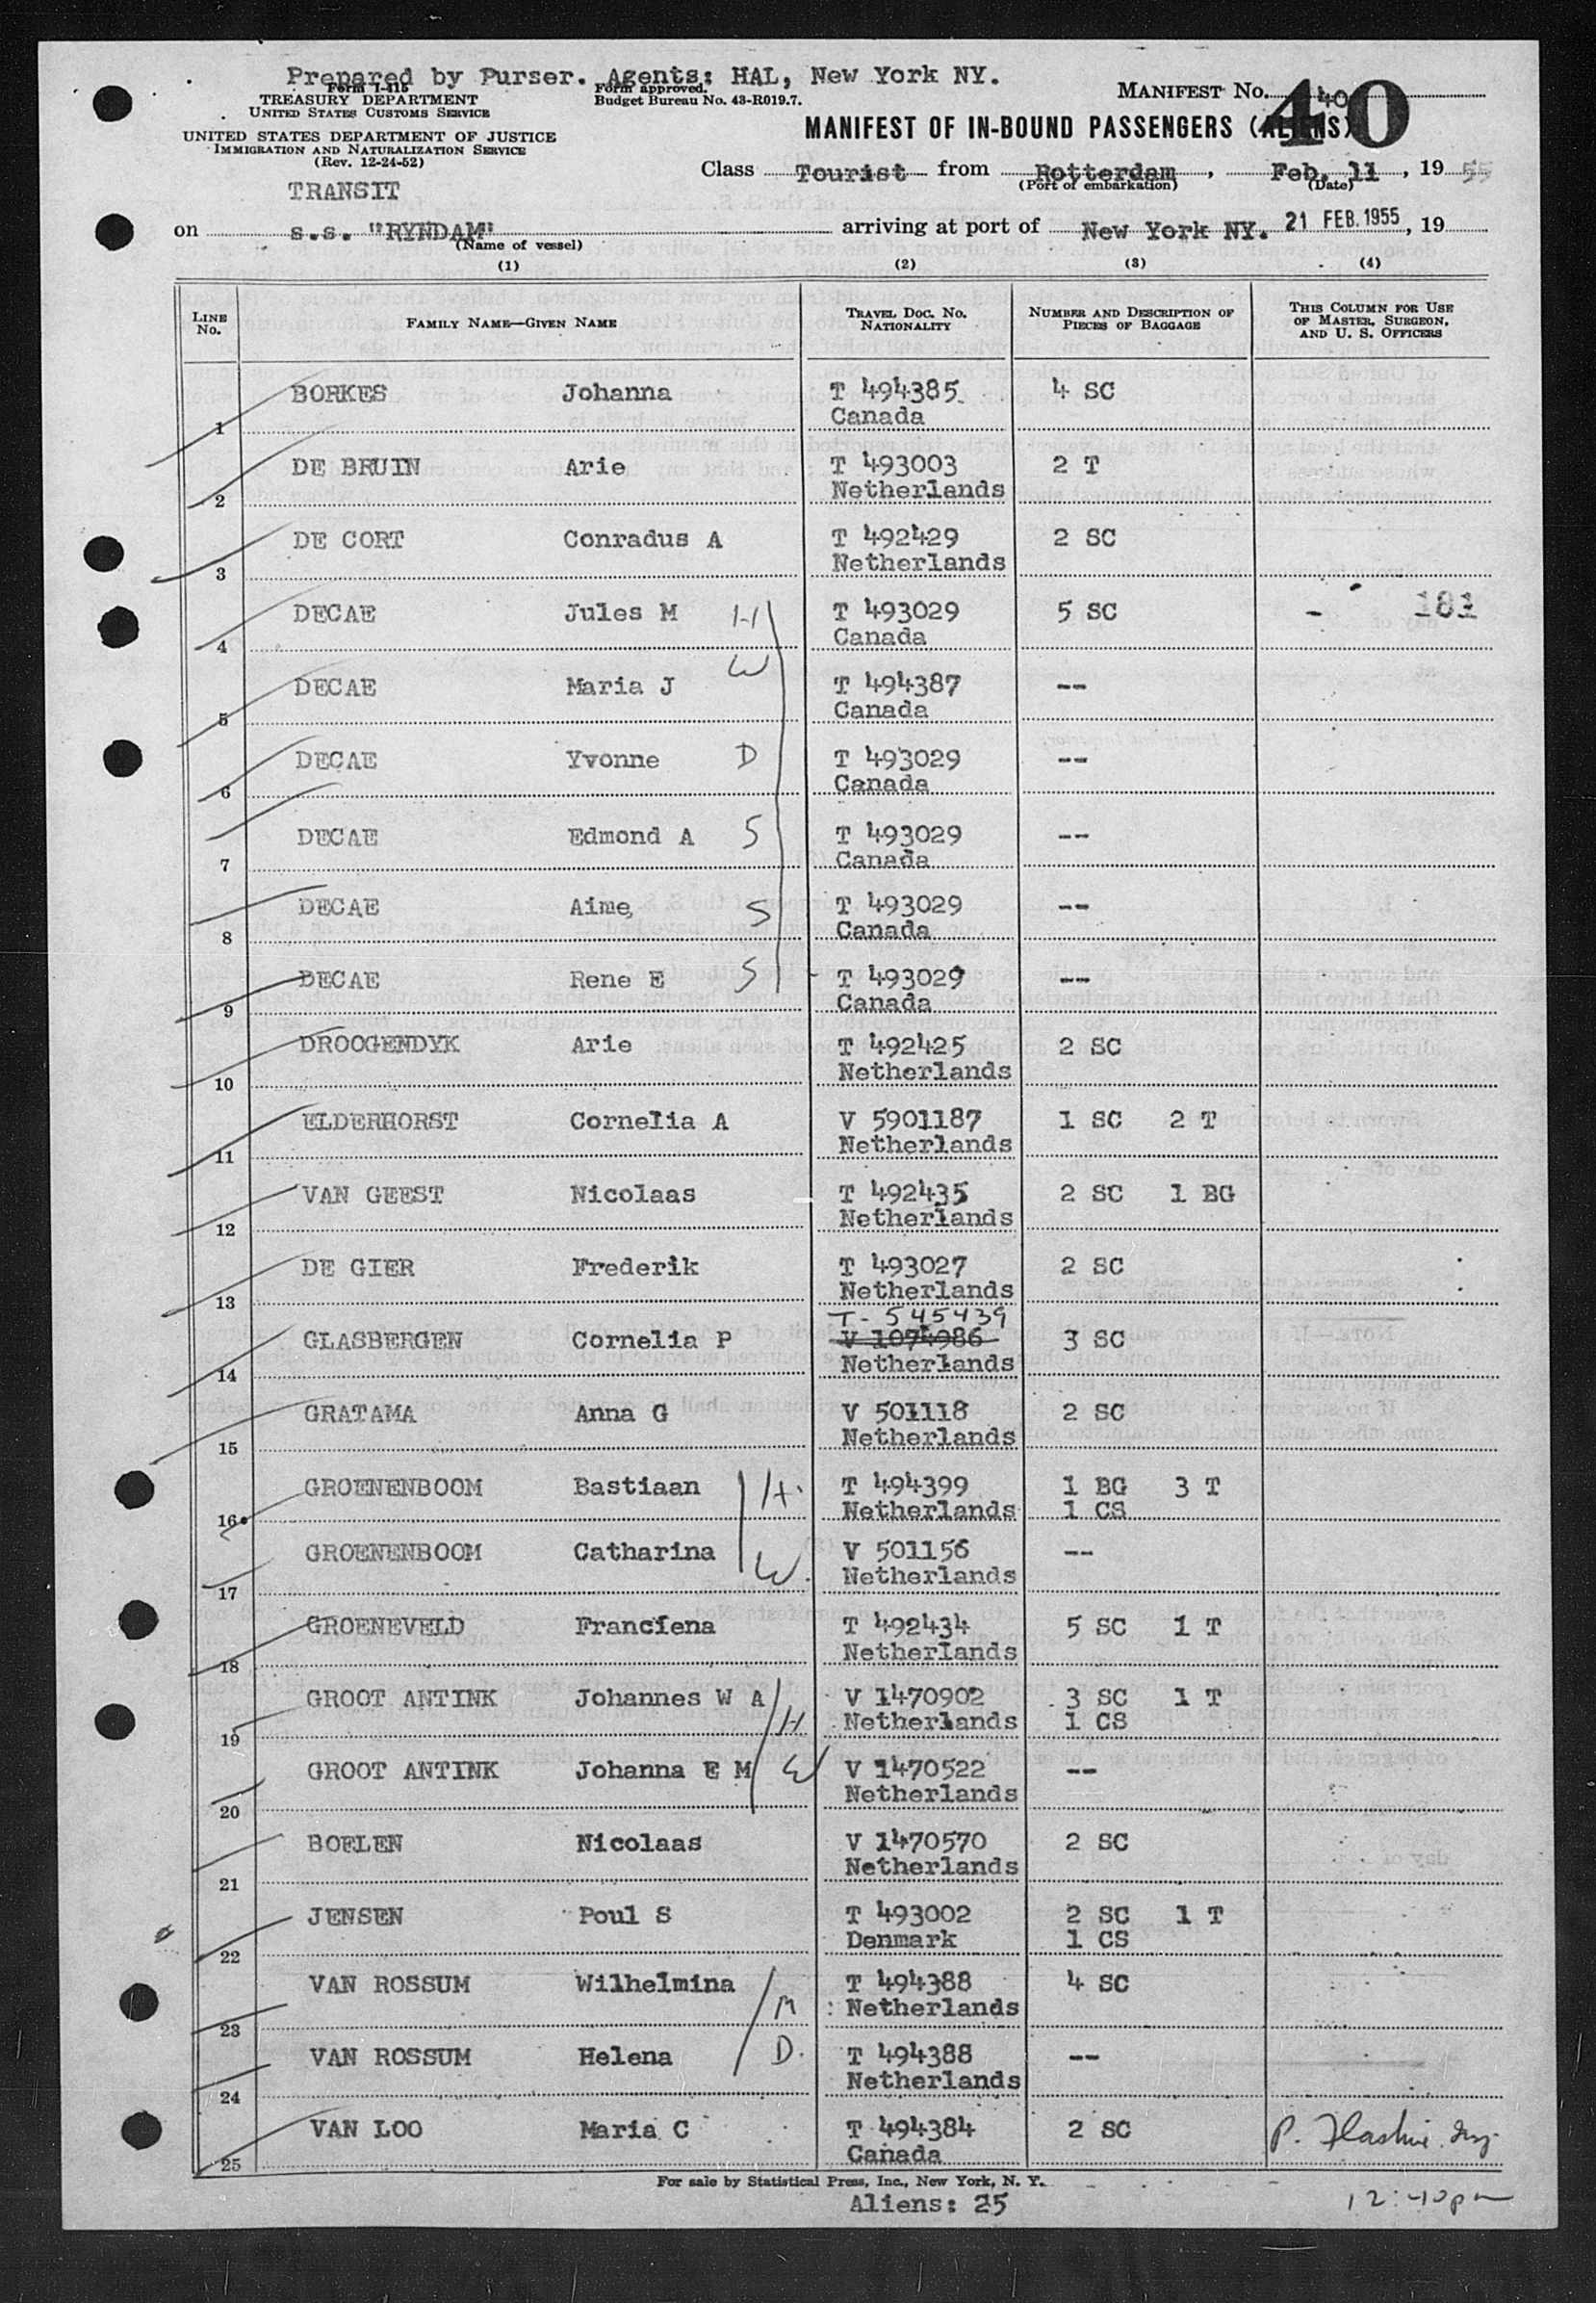 Prepared by Purser. Agents: HAL, New York NY.
Form I-415
TREASURY DEPARTMENT
UNITED STATES CUSTOMS SERVICE
UNITED STATES DEPARTMENT OF JUSTICE
IMMIGRATION AND NATURALIZATION SERVICE
(Rev. 12-24-52)
Form approved.
Budget Bureau No. 43-R019.7.
MANIFEST No. 40
40
MANIFEST OF IN-BOUND PASSENGERS (ALIENS)
Class Tourist from Rotterdam, Feb. 11, 19 55
(Port of embarkation) (Date)
TRANSIT
on s.s. "RYNDAM" arriving at port of New York NY. 21 FEB. 1955, 19
(Name of vessel)
(1) (2) (3) (4)
LINE No. FAMILY NAME—GIVEN NAME TRAVEL DOC. NO. NATIONALITY NUMBER AND DESCRIPTION OF PIECES OF BAGGAGE THIS COLUMN FOR USE OF MASTER, SURGEON, AND U. S. OFFICERS
1 BORKES Johanna T 494385 4 SC
Canada
2 DE BRUIN Arie T 493003 2 T
Netherlands
3 DE CORT Conradus A T 492429 2 SC
Netherlands
4 DECAE Jules M H T 493029 5 SC - 181
Canada
5 DECAE Maria J W T 494387 --
Canada
6 DECAE Yvonne D T 493029 --
Canada
7 DECAE Edmond A S T 493029 --
Canada
8 DECAE Aime S T 493029 --
Canada
9 DECAE Rene E S T 493029 --
Canada
10 DROOGENDYK Arie T 492425 2 SC
Netherlands
11 ELDERHORST Cornelia A V 5901187 1 SC 2 T
Netherlands
12 VAN GEEST Nicolaas T 492435 2 SC 1 BG
Netherlands
13 DE GIER Frederik T 493027 2 SC
Netherlands
T- 545439
14 GLASBERGEN Cornelia P V 1074986 3 SC
Netherlands
15 GRATAMA Anna G V 501118 2 SC
Netherlands
16 GROENENBOOM Bastiaan H. T 494399 1 BG 3 T
Netherlands 1 CS
17 GROENENBOOM Catharina W. V 501156 --
Netherlands
18 GROENEVELD Franciena T 492434 5 SC 1 T
Netherlands
19 GROOT ANTINK Johannes W A H V 1470902 3 SC 1 T
Netherlands 1 CS
20 GROOT ANTINK Johanna E M W V 1470522 --
Netherlands
21 BOELEN Nicolaas V 1470570 2 SC
Netherlands
22 JENSEN Poul S T 493002 2 SC 1 T
Denmark 1 CS
23 VAN ROSSUM Wilhelmina M T 494388 4 SC
Netherlands
24 VAN ROSSUM Helena D. T 494388 --
Netherlands
25 VAN LOO Maria C T 494384 2 SC
Canada
For sale by Statistical Press, Inc., New York, N. Y.
Aliens: 25
12:40pm